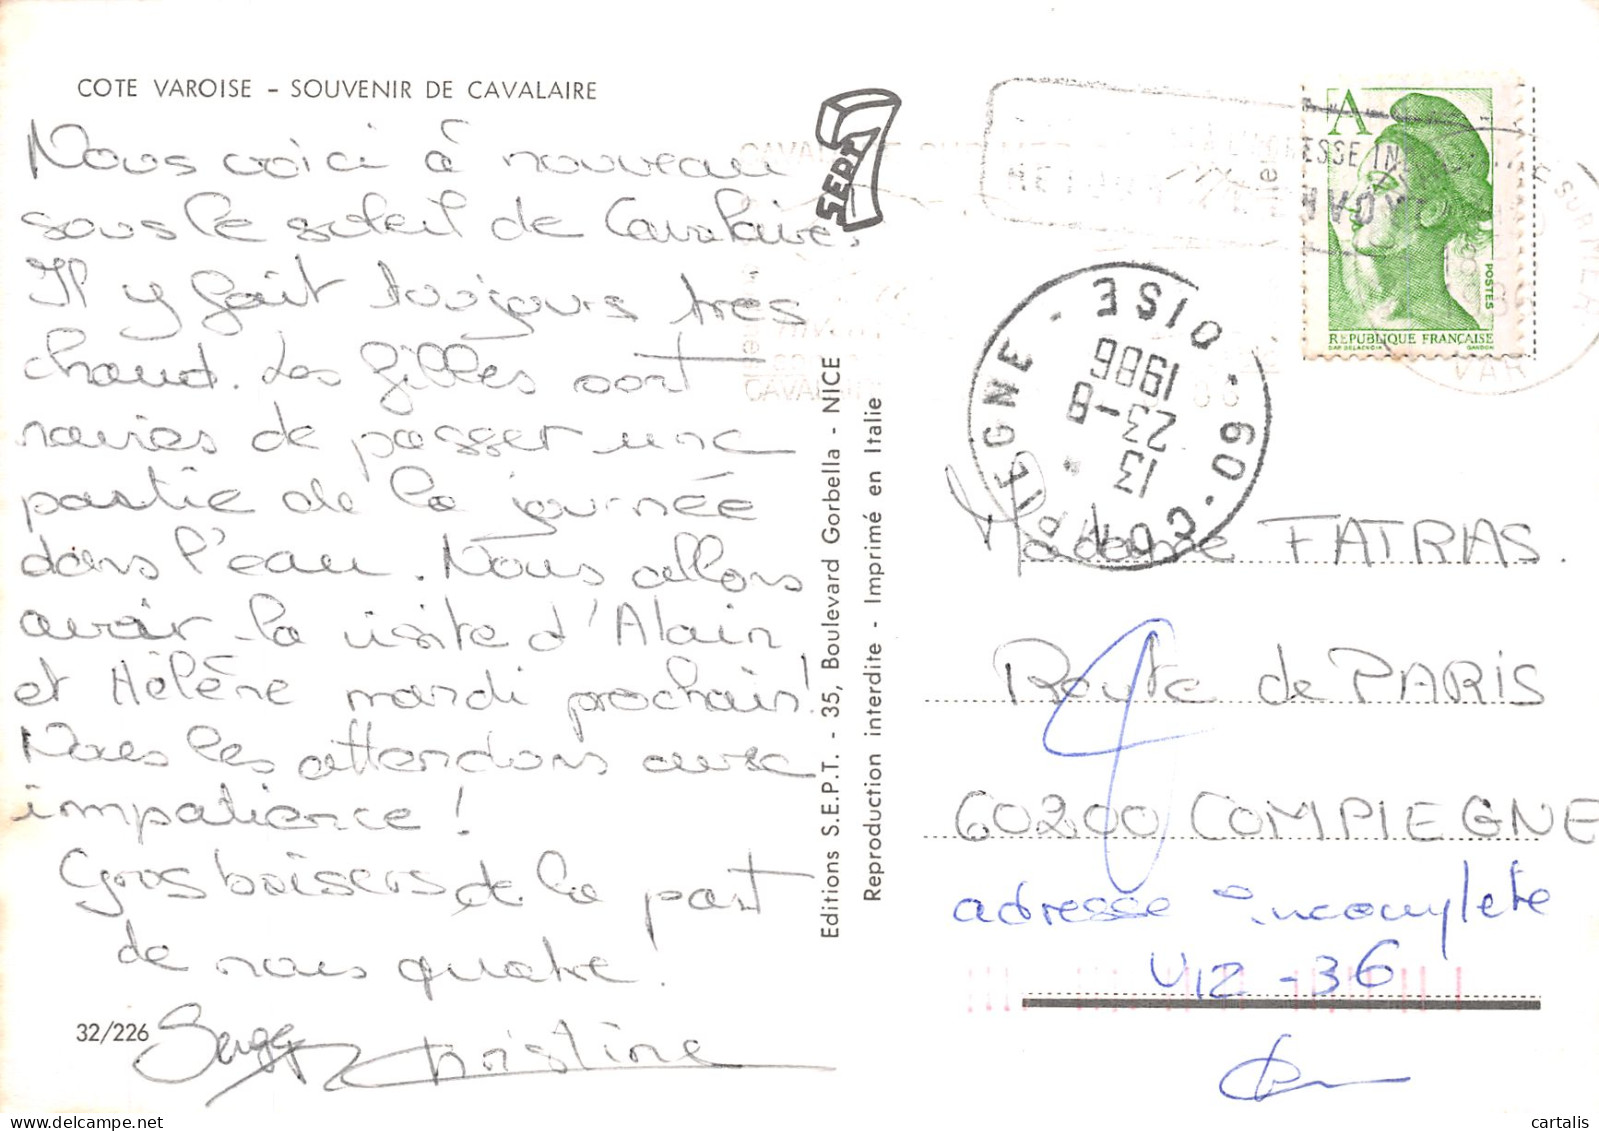 COTE VAROISE - SOUVENIR DE CAVALAIRE
Nous voici à nouveau
sous le soleil de Cavalaire.
Il y fait toujours très
chaud. Les filles sont
ravies de passer une
partie de la journée
dans l'eau. Nous allons
avoir la visite d'Alain
et Hélène mardi prochain!
Nous les attendons avec
impatience !
Gros baisers de la part
de nous quatre.
Serge Christine
32/226
SEPT
7
Editions S.E.P.T. - 35, Boulevard Gorbella - NICE
Reproduction interdite - Imprimé en Italie
A
POSTES
REPUBLIQUE FRANÇAISE
DAP. DELACROIX GANDON
VAR
60 - COMPIEGNE - OISE
13
23-8
1986
Madame FATRAS.
Route de PARIS
60200 COMPIEGNE
adresse incomplete
V12-36
cartalis